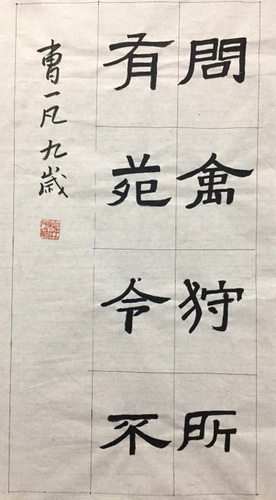 問禽狩所
有苑令不
曹一凡九歲